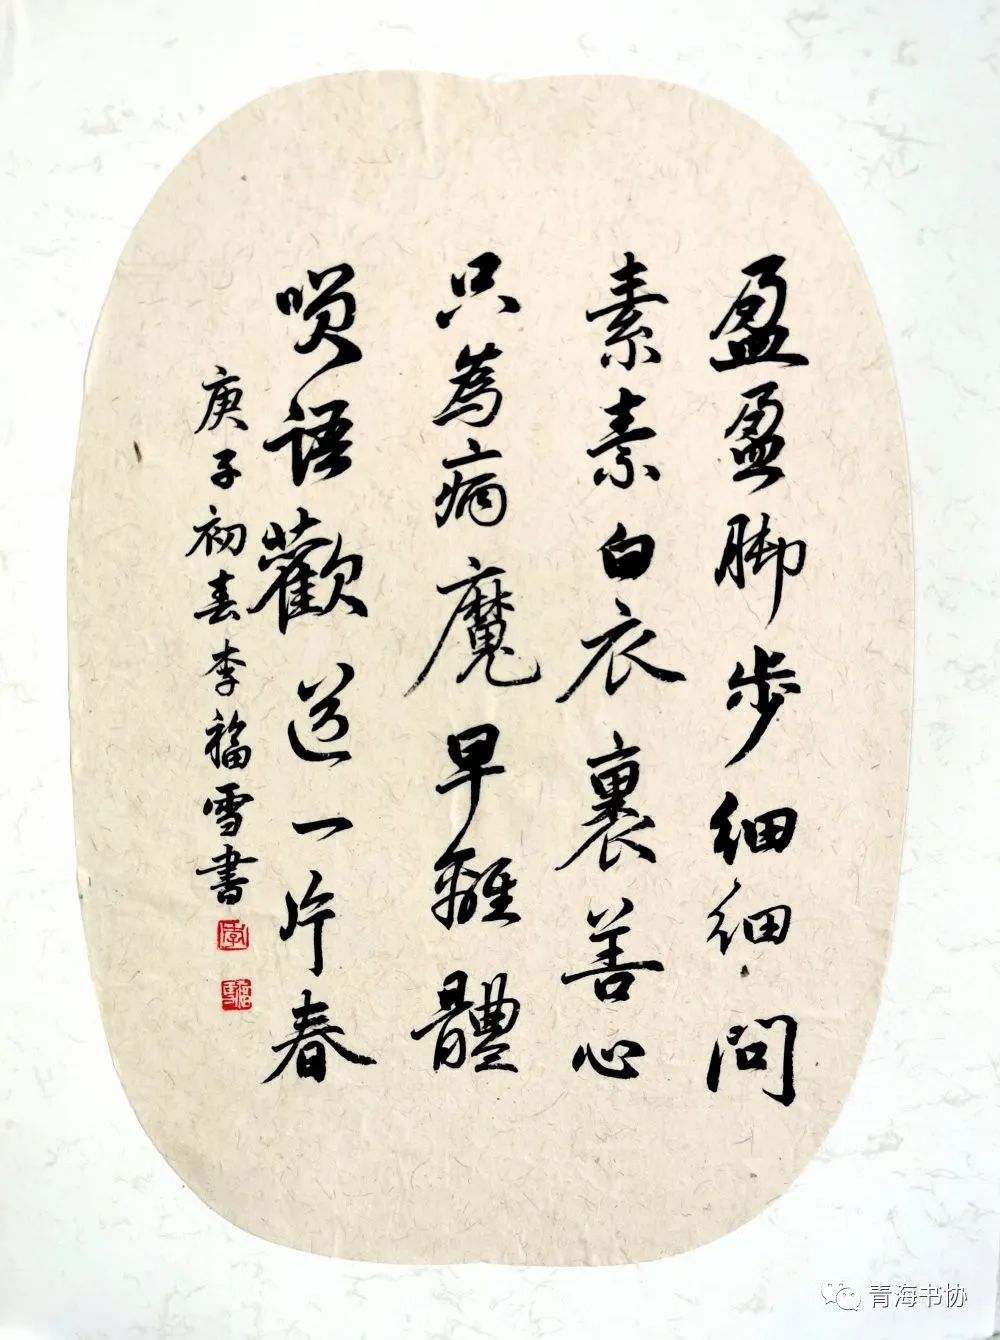 盈盈脚步细细问
素素白衣裹善心
只為病魔早離體
笑語歡送一片春
庚子初春李福雪書
青海书协